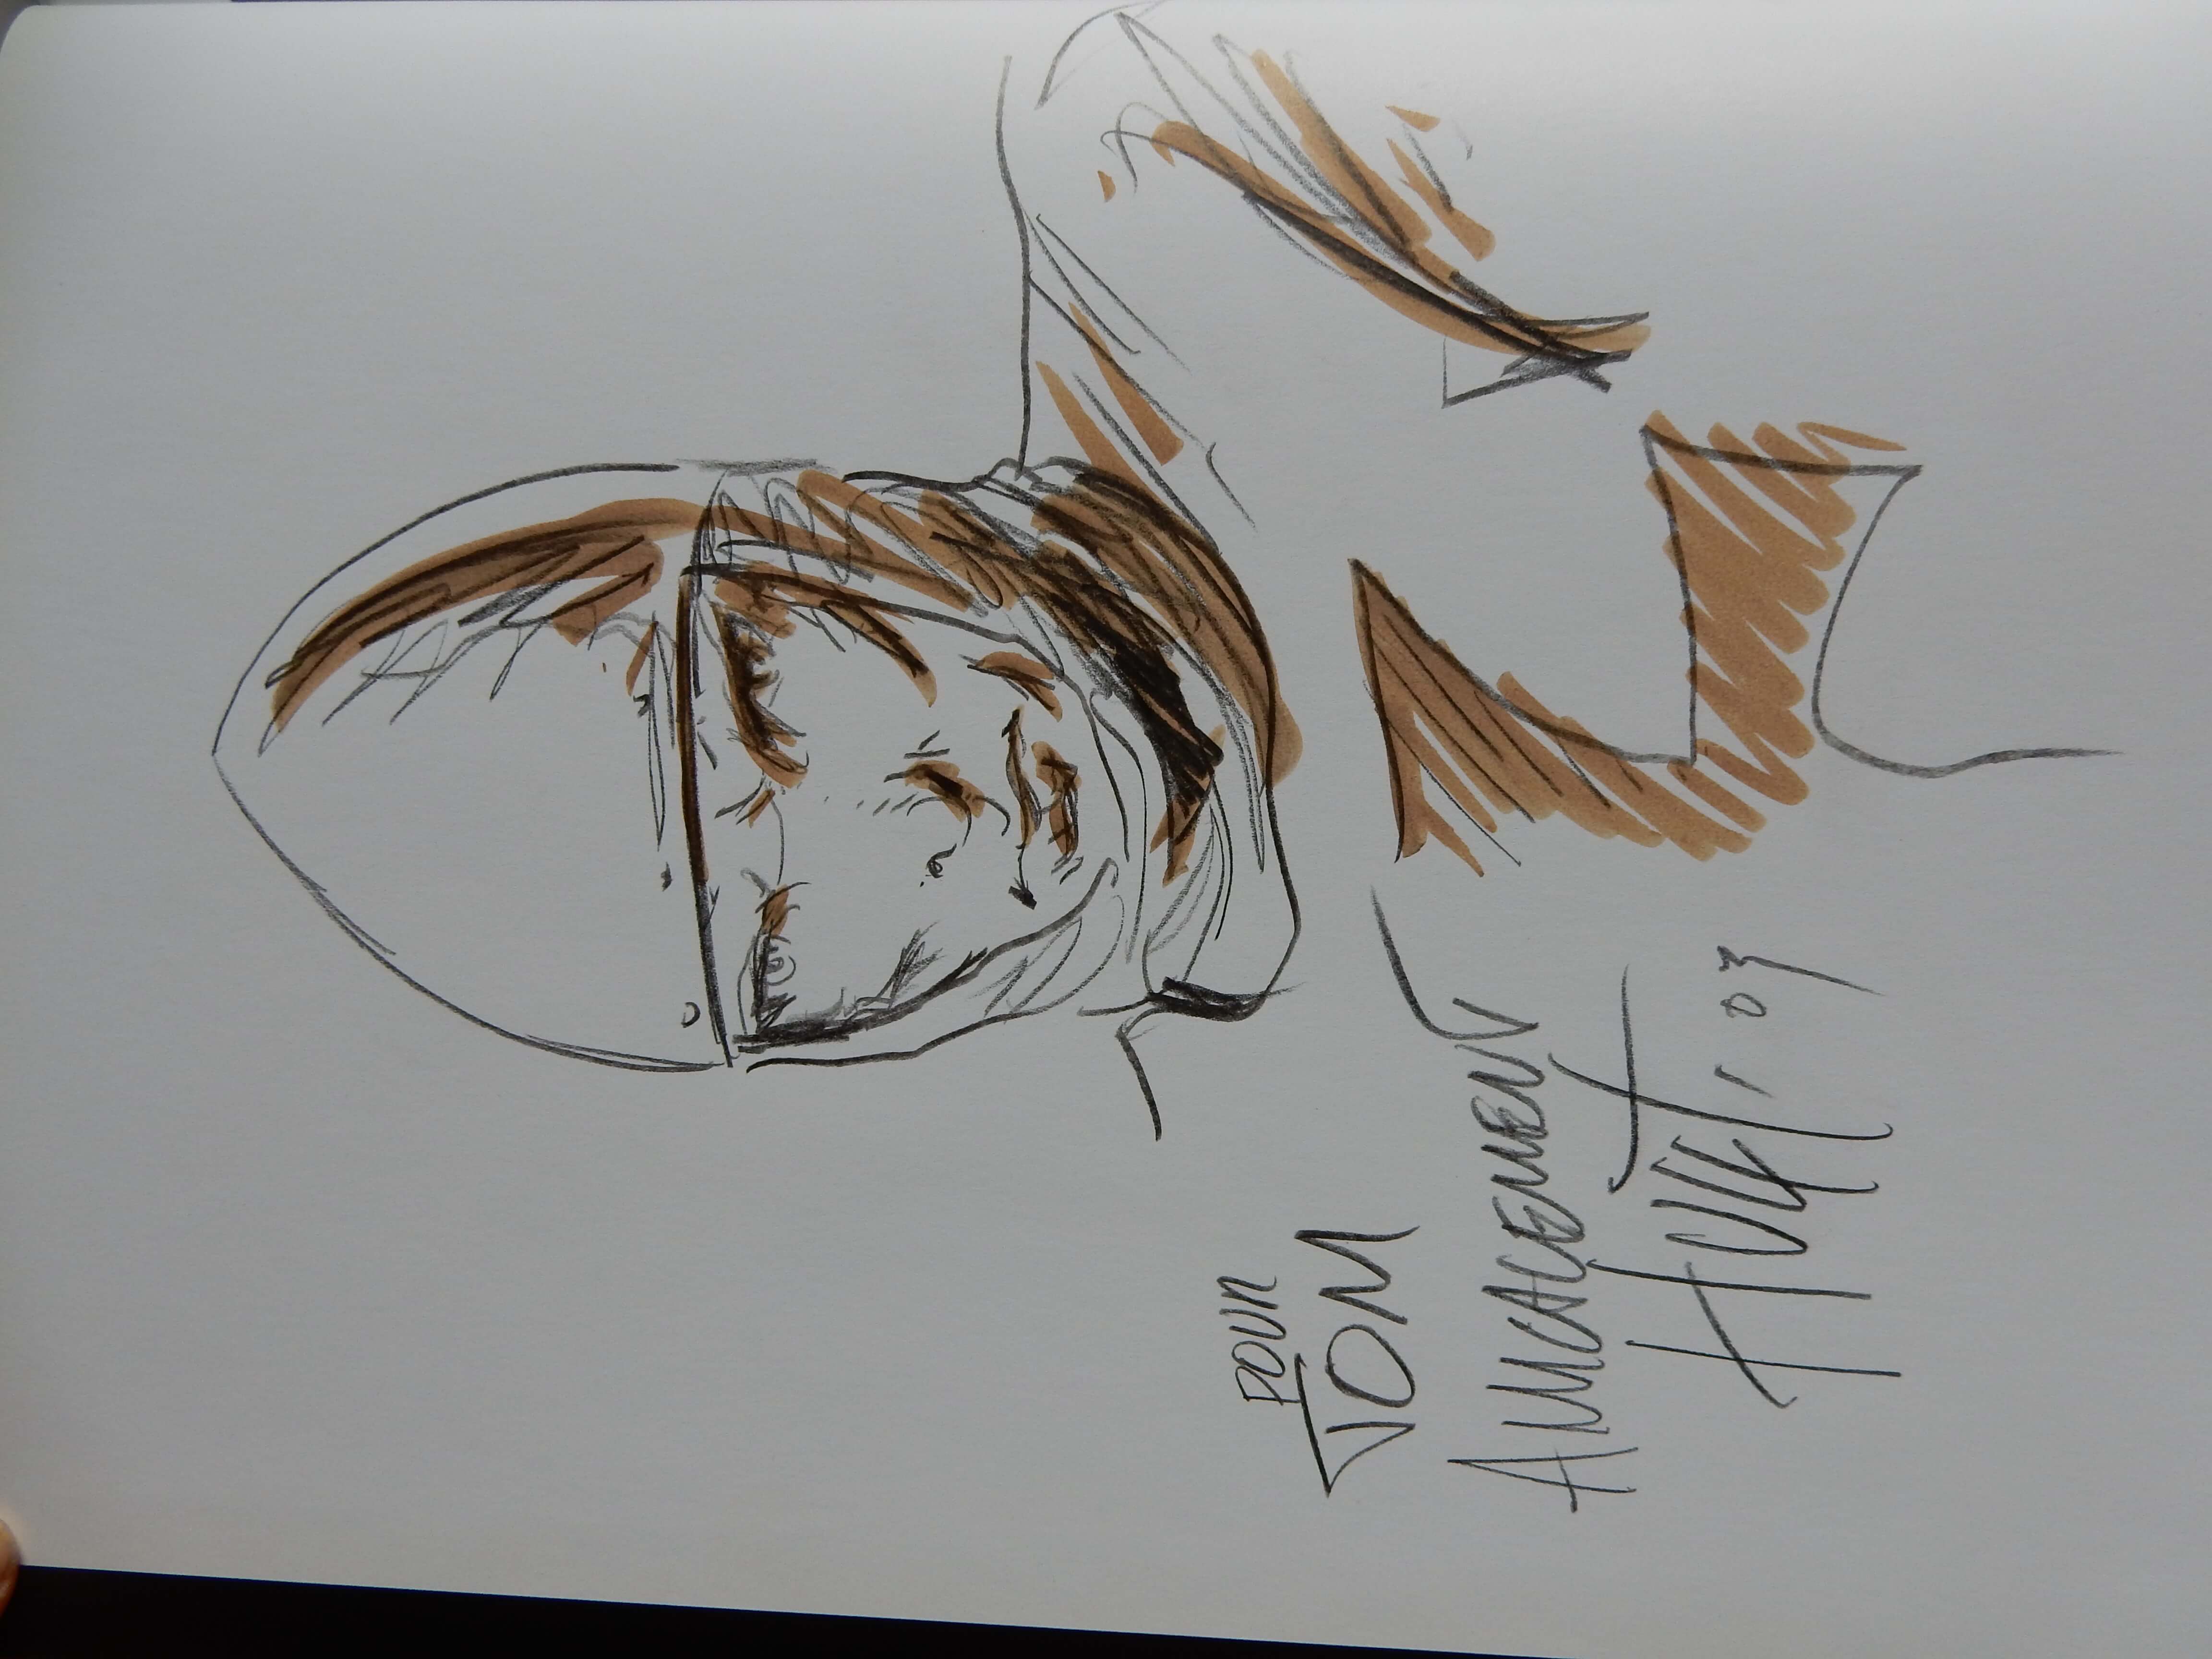 POUR
TOM
AMICALEMENT
HULET. 03